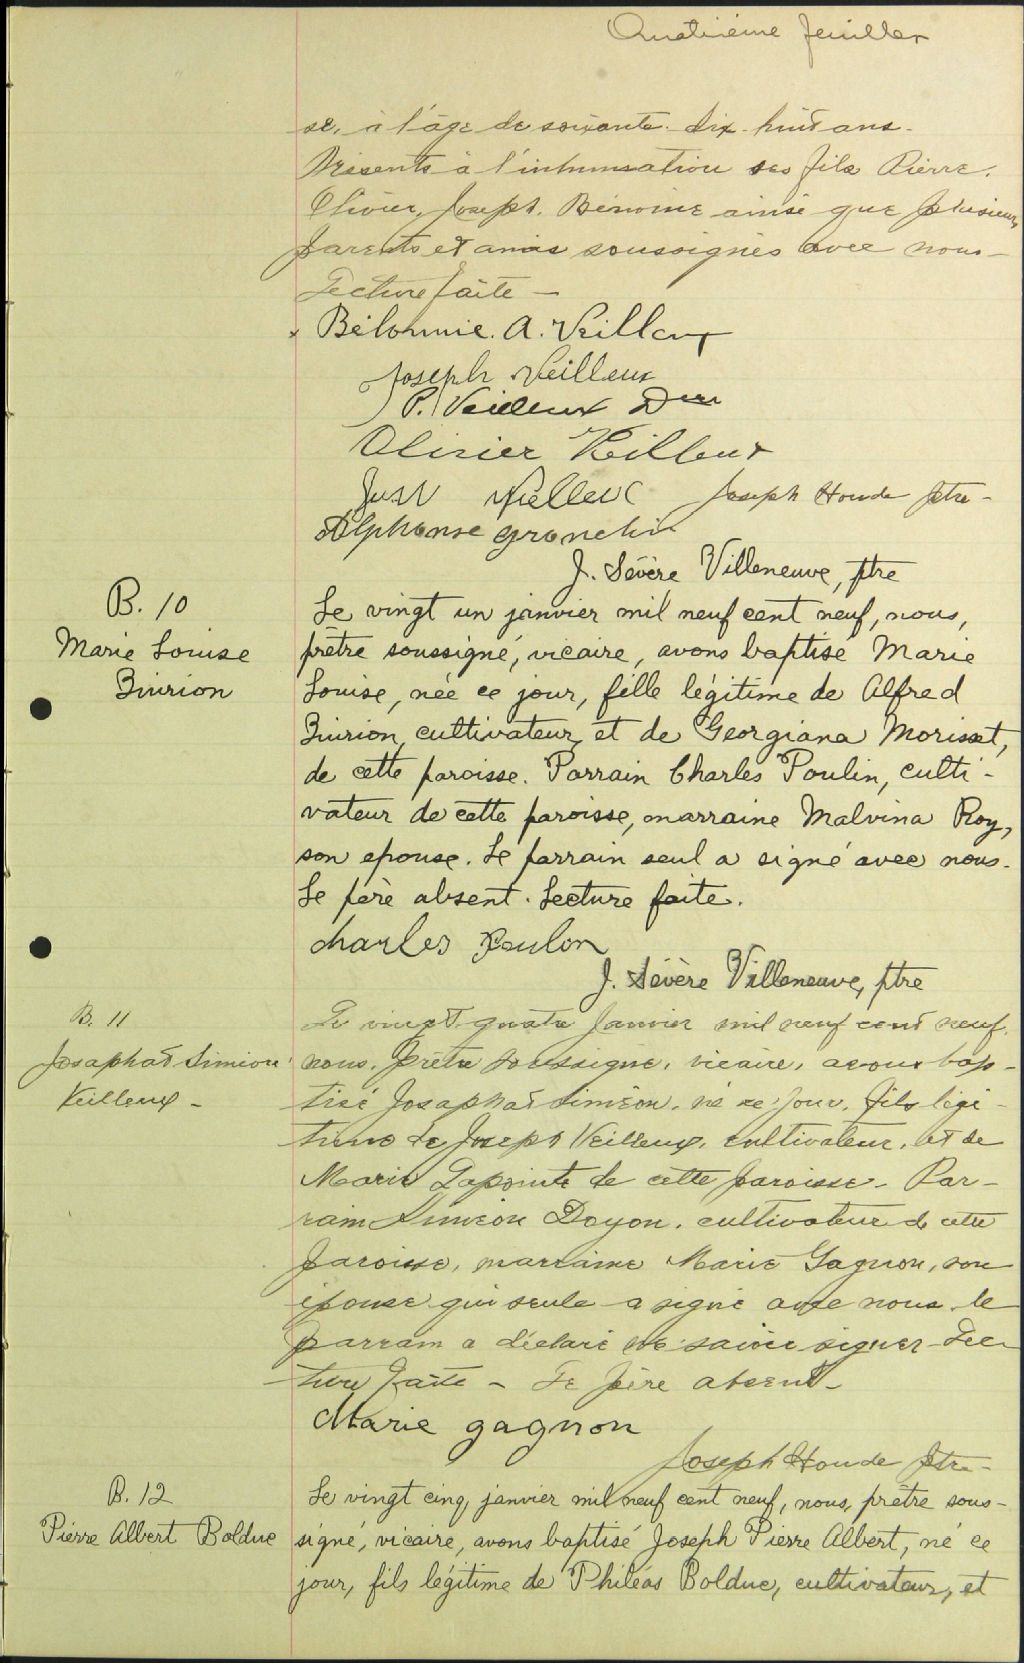 Quatrième feuillet
se, à l'âge de soixante-dix-huit ans.
Présents à l'inhumation ses fils Pierre,
Olivier, Joseph, Bénonie ainsi que plusieurs
parents et amis soussignés avec nous -
Lecture faite -
x Bélonnie. A. Veilleux
Joseph Veilleux
P. Veilleux
Olivier Veilleux
Just Vielleux Joseph Houde ptre -
Alphonse
J. Sévère Villeneuve, ptre
B. 10
Marie Louise
Binrion
Le vingt un janvier mil neuf cent neuf, nous,
prêtre soussigné, vicaire, avons baptisé Marie
Louise, née ce jour, fille légitime de Alfred
Binrion, cultivateur, et de Georgiana Morisset,
de cette paroisse. Parrain Charles Poulin, culti-
vateur de cette paroisse, marraine Malvina Roy,
son epouse. Le parrain seul a signé avec nous.
Le père absent. Lecture faite.
Charles Poulon
J. Sévère Villeneuve, ptre
B. 11
Josaphat Siméon
Veilleux -
Le vingt-quatre janvier mil neuf cent neuf,
nous, prêtre soussigné, vicaire, avons bap-
tisé Josaphat Siméon, né ce jour, fils légi-
time de Joseph Veilleux, cultivateur, et de
Marie Lapointe de cette paroisse - Par-
rain Siméon Doyon, cultivateur de cette
paroisse, marraine Marie Gagnon, son
épouse qui seule a signé avec nous, le
parrain a déclaré ne savoir signer - Lec-
ture faite - Le père absent -
Marie gagnon
Joseph Houde ptre -
B. 12
Pierre Albert Bolduc
Le vingt cinq janvier mil neuf cent neuf, nous, prêtre sous-
signé, vicaire, avons baptisé Joseph Pierre Albert, né ce
jour, fils légitime de Philéas Bolduc, cultivateur, et